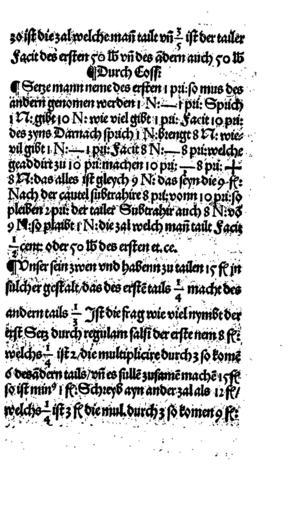 30 ist die zal welche mañ tailt vñ 3/5 ist der tailer
Facit des ersten 50 lb vñ des ãdern auch 50 lb
¶Durch Coss:
¶ Setze mann neme des ersten 1 pri: so mus des
andern genomen werden 1 N:—1 pri: Spüch
1 N: gibt 10 N: wie viel gibt 1 pri: Facit 10 pri:
des zyns Darnach spüch 1 N: brengt 8 N: wie-
vil gibt 1 N:—1 pri: Facit 8 N:—8 pri: welche
geaddirt zu 10 pri: machen 10 pri:—8 pri: +
8 N: das alles ist gleych 9 N: das seyn die 9 fl:
Nach der cautel subtrahire 8 pri: vonn 10 pri: so
pleiben 2 pri: der tailer Subtrahir auch 8 N: võ
9 N: so plaibt 1 N: die zal welch mañ tailt Facit
1/2 cent: oder 50 lb des ersten et.ce.
¶Unser sein zwen vnd habenn zu tailen 15 fl: in
sulcher gestalt/das des erstẽ tails 1/4 macht des
andern tails 1/4 Ist die frag wie viel nymbt der
erst Setz durch regulam falsi der erste nem 8 fl:
welchs 1/4 ist 2/die multiplicire durch 3 so komẽ
6 des ãdern tails/vñ es sullẽ zusamẽ machẽ 15 fl:
so ist min9 1 fl: Schreyb ayn ander zal als 12 fl:/
welchs 1/4 ist 3 fl: die mul. durch 3 so komen 9 fl: